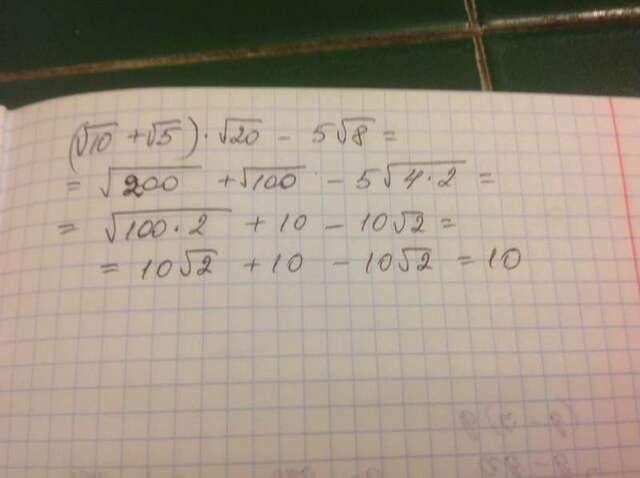 (√10 + √5) · √20 - 5√8 =
= √200 + √100 - 5√4·2 =
= √100·2 + 10 - 10√2 =
= 10√2 + 10 - 10√2 = 10